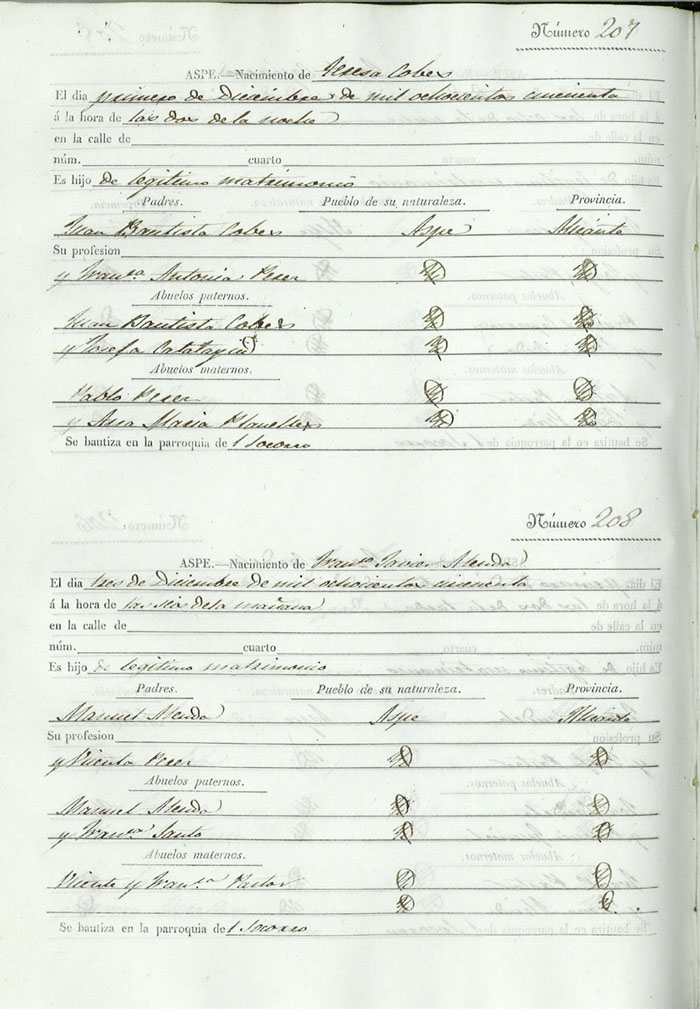 Número 207
ASPE.—Nacimiento de Teresa Cobes
El dia primero de Diciembre de mil ochocientos cincuenta
á la hora de las dos de la noche
en la calle de
núm. cuarto
Es hijo de legitimo matrimonio
Padres. Pueblo de su naturaleza. Provincia.
Juan Bautista Cobes Aspe Alicante
Su profesion
y Franca Antonia
Abuelos paternos.
Juan Bautista Cobes
y Josefa Calatayud
Abuelos maternos.
Pablo
y Ana Maria Planelles
Se bautiza en la parroquia del Socorro
Número 208
ASPE.—Nacimiento de Franco Javier
El dia tres de Diciembre de mil ochocientos cincuenta
á la hora de las seis de la mañana
en la calle de
núm. cuarto
Es hijo de legitimo matrimonio
Padres. Pueblo de su naturaleza. Provincia.
Manuel Aspe Alicante
Su profesion
y Vicenta
Abuelos paternos.
Manuel
y Franca
Abuelos maternos.
Vicente y Franca Pastor
Se bautiza en la parroquia del Socorro